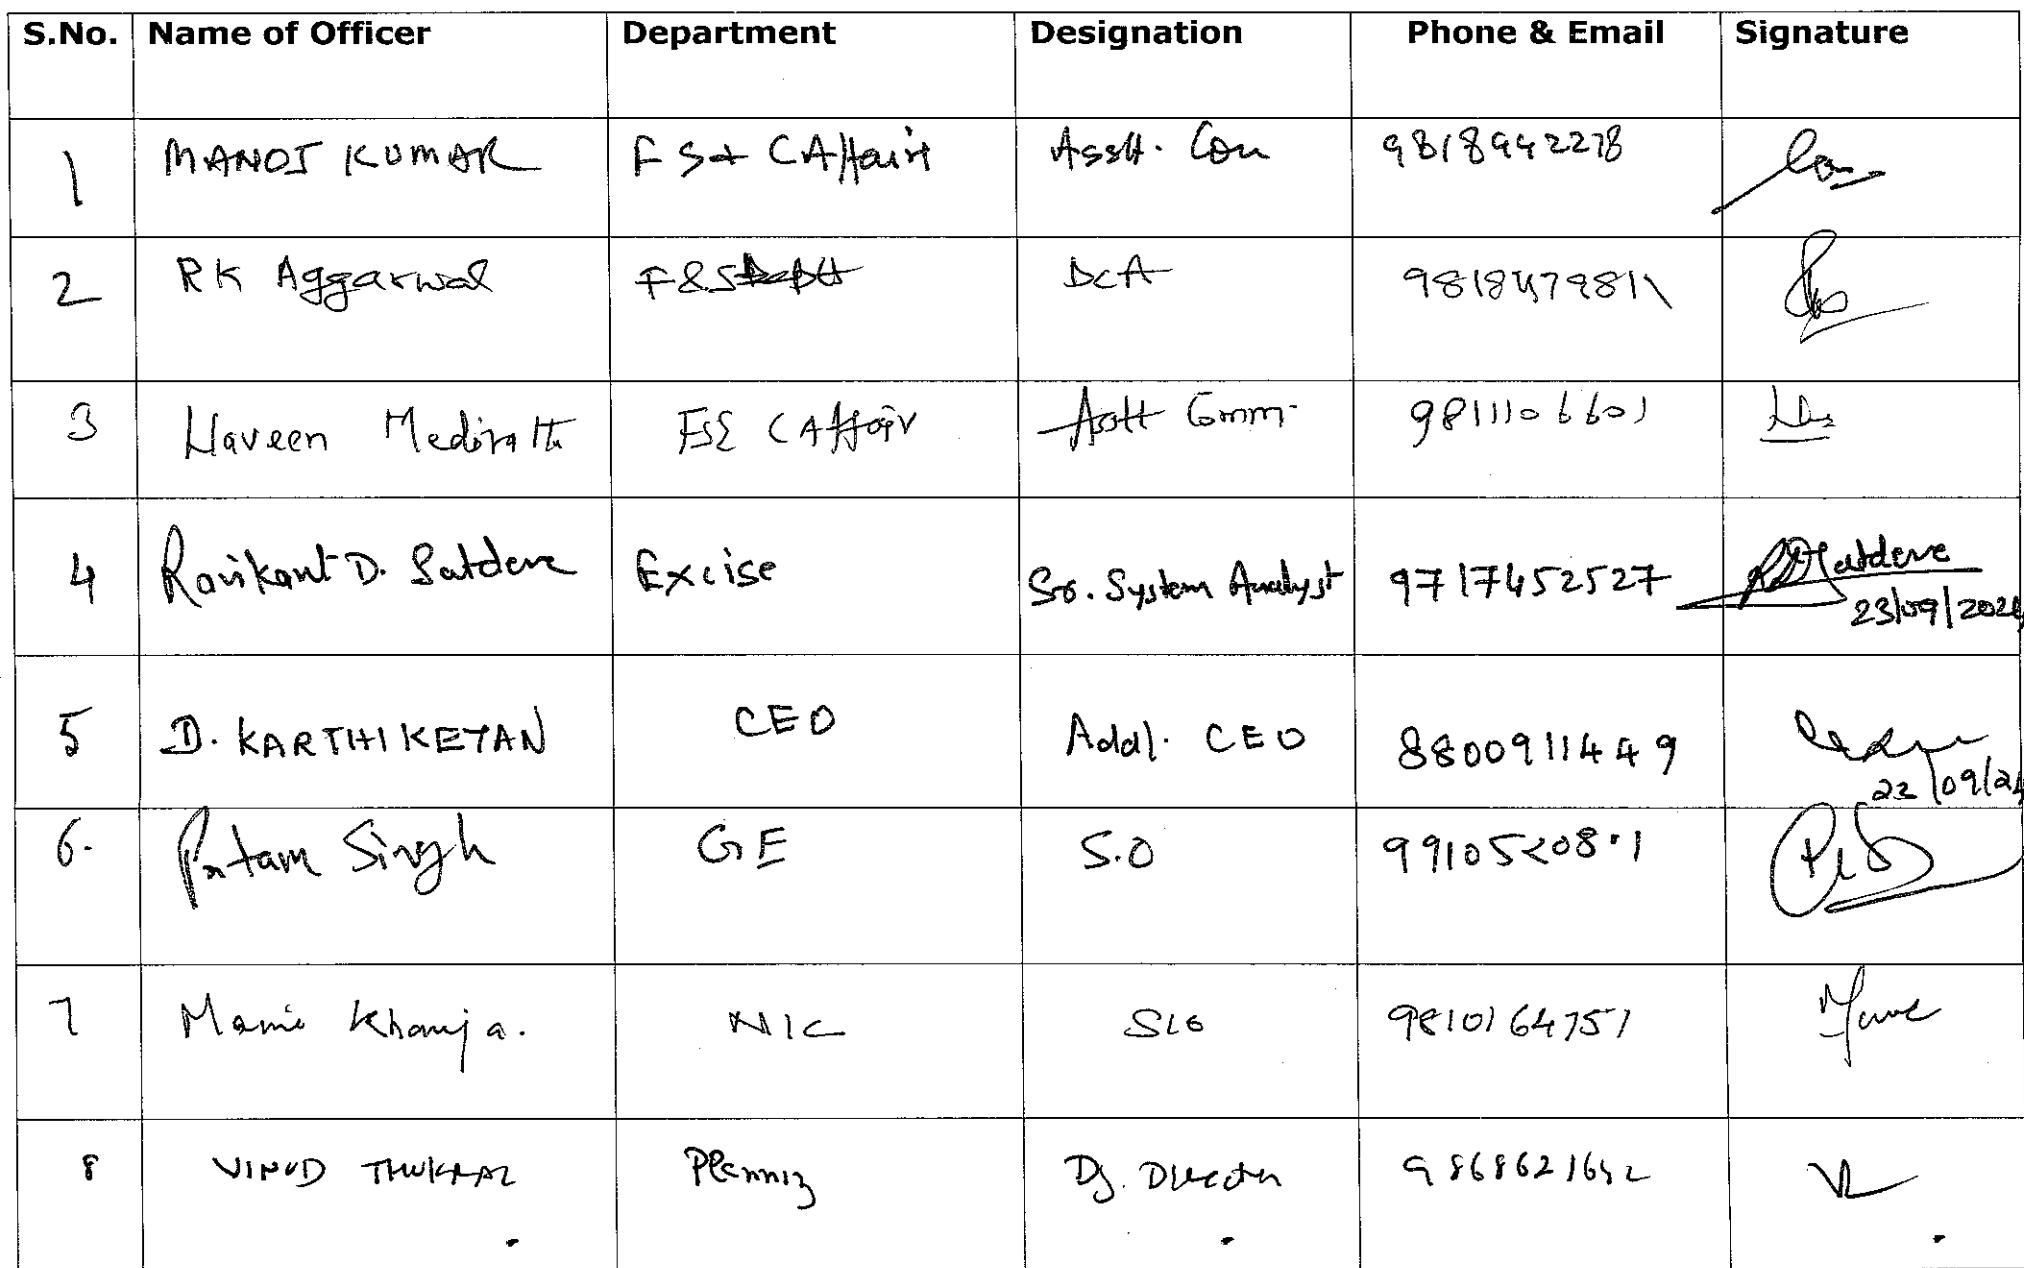 S.No. Name of Officer Department Designation Phone & Email Signature
1 MANOJ KUMAR F S & C Affairs Asstt. Com 9818942278
2 RK Aggarwal F&S DCA 9818479811
3 Naveen Mediratta FS& C Affair Asstt Comm. 9811106601
4 Ravikant D. Satdeve Excise Sr. System Analyst 9717452527 Satdeve
23/09/2024
5 D. KARTHIKEYAN CEO Addl. CEO 8800911449
23/09/24
6. Pritam Singh GE S.O
7 Khanija. NIC SIO 9810164751
8 VINOD THUKRAL Planning Dy. Director